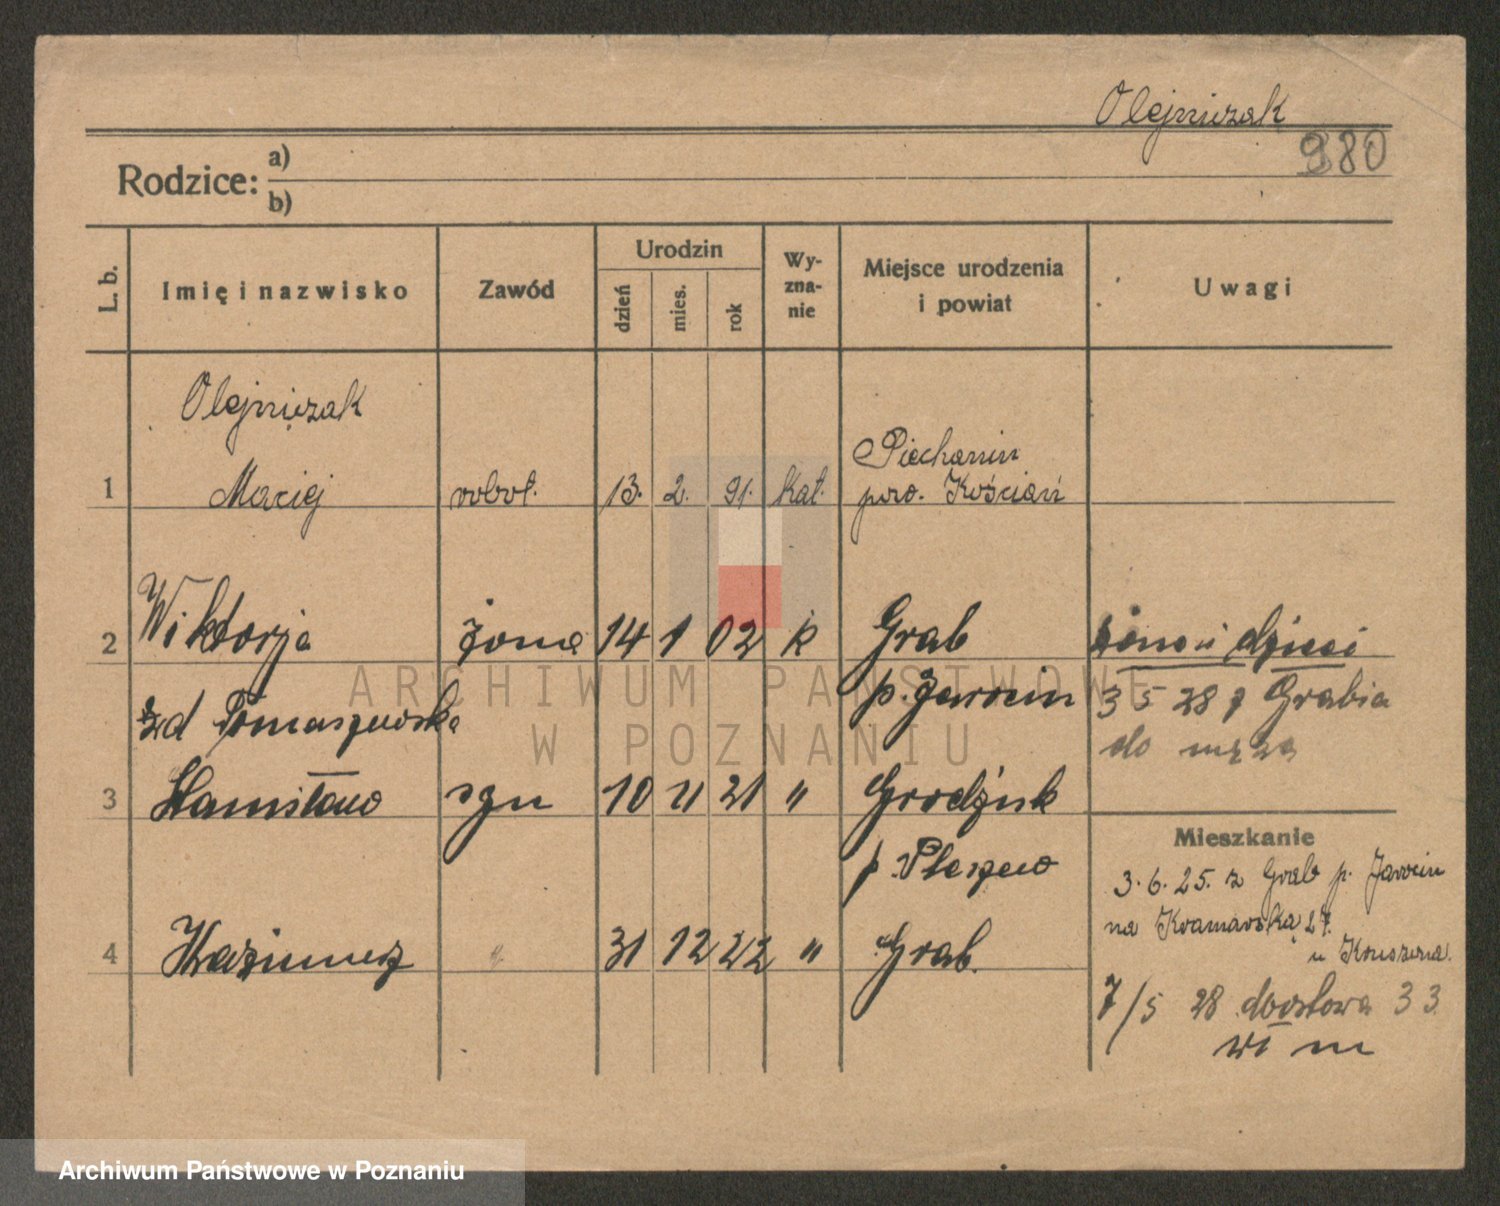 Olejniczak
980
Rodzice: a)
b)
L. b.
Imię i nazwisko
Zawód
Urodzin
dzień
mies.
rok
Wy-
zna-
nie
Miejsce urodzenia
i powiat
Uwagi
Olejniczak
1 Maciej robot. 13. 2. 91. kat. Piechanin
pow. Kościań
2 Wiktorja żona 14 1 02 k Grab żona i dzieci
zd Tomaszewska p. Jarocin 3 5 28 z Grabia
do męża
3 Stanisław syn 10 11 21 " Grodzisk
p. Pleszew
Mieszkanie
3. 6. 25. z Grab p. Jarocin
na Kramarską 27.
u
4 Kazimierz " 31 12 22 " Grab.
7/5 28 33
m
ARCHIWUM PAŃSTWOWE
W POZNANIU
Archiwum Państwowe w Poznaniu